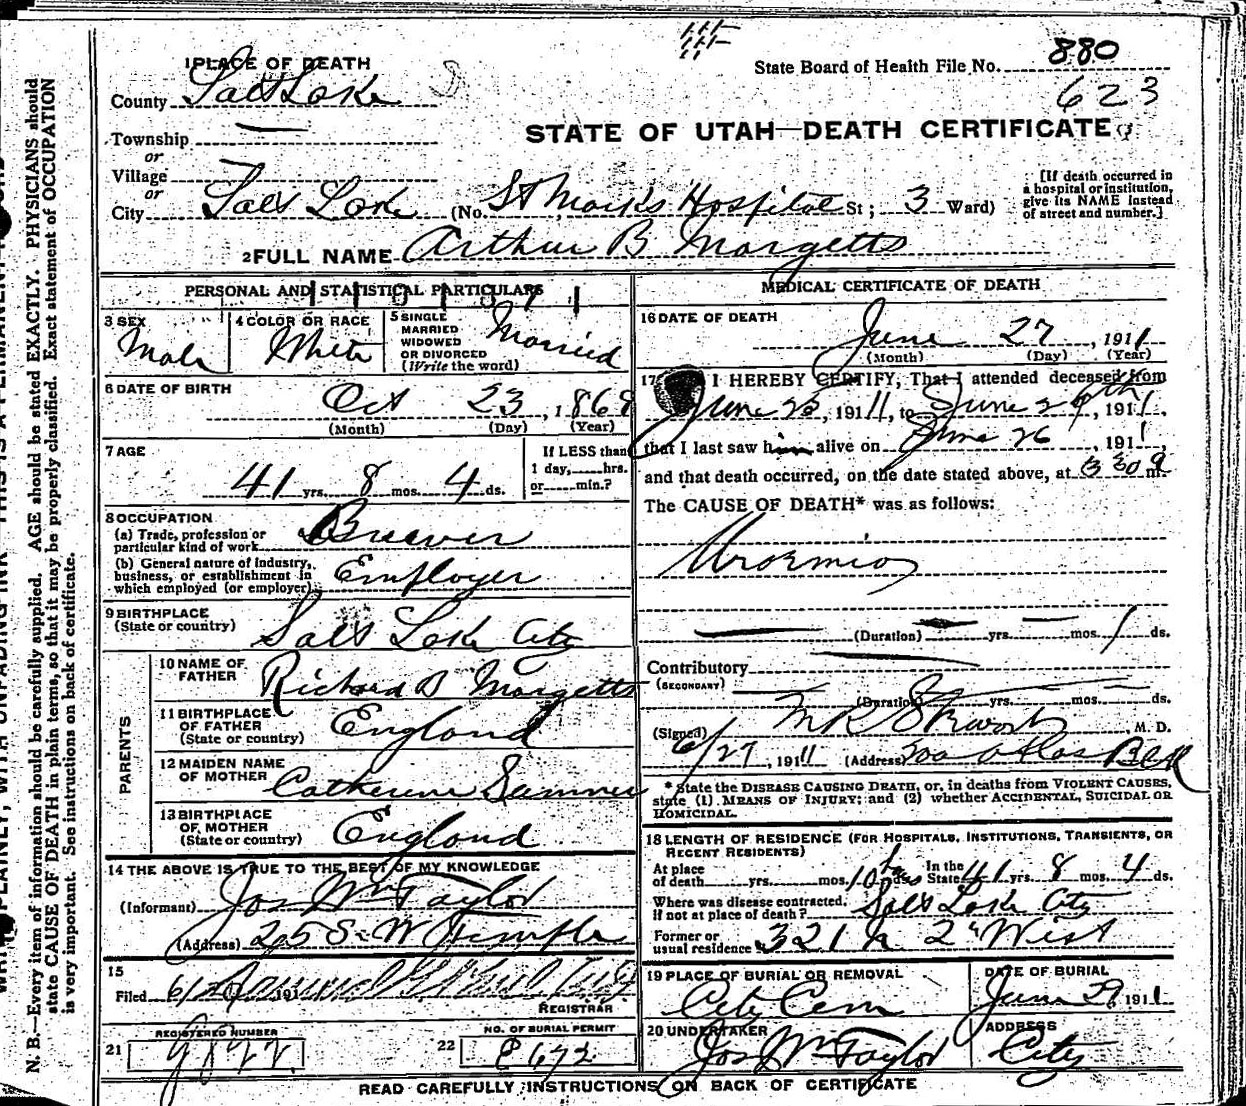 880
State Board of Health File No.
623
1 PLACE OF DEATH
County Salt Lake
STATE OF UTAH—DEATH CERTIFICATE
Township
or
Village
or
City Salt Lake (No. St Marks Hospital St; 3 Ward)
[If death occurred in
a hospital or institution,
give its NAME instead
of street and number.]
2 FULL NAME Arthur B Margetts
PERSONAL AND STATISTICAL PARTICULARS
3 SEX
Male
4 COLOR OR RACE
White
5 SINGLE
MARRIED
WIDOWED
OR DIVORCED
(Write the word)
Married
6 DATE OF BIRTH
Oct 23, 1869
(Month) (Day) (Year)
7 AGE
41 yrs. 8 mos. 4 ds.
If LESS than
1 day, hrs.
or min.?
8 OCCUPATION
(a) Trade, profession or
particular kind of work Brewer
(b) General nature of Industry,
business, or establishment in
which employed (or employer) Employer
9 BIRTHPLACE
(State or country) Salt Lake City
PARENTS
10 NAME OF
FATHER Richard B Margetts
11 BIRTHPLACE
OF FATHER
(State or country) England
12 MAIDEN NAME
OF MOTHER Catherine Sumner
13 BIRTHPLACE
OF MOTHER
(State or country) England
14 THE ABOVE IS TRUE TO THE BEST OF MY KNOWLEDGE
(Informant) Jos Wm Taylor
(Address) 25 S. W Temple
15
Filed 191
REGISTRAR
21
REGISTERED NUMBER
22
NO. OF BURIAL PERMIT
E 672
MEDICAL CERTIFICATE OF DEATH
16 DATE OF DEATH
June 27, 1911
(Month) (Day) (Year)
17 I HEREBY CERTIFY, That I attended deceased from
June 25, 1911, to June 26th, 1911,
that I last saw him alive on June 26, 1911,
and that death occurred, on the date stated above, at 3 30 a m.
The CAUSE OF DEATH* was as follows:
Uraemia
(Duration) yrs. mos. 1 ds.
Contributory
(SECONDARY)
(Duration) yrs. mos. ds.
(Signed) M. D.
6/27, 1911 (Address)
* State the DISEASE CAUSING DEATH, or, in deaths from VIOLENT CAUSES,
state (1) MEANS OF INJURY; and (2) whether ACCIDENTAL, SUICIDAL OR
HOMICIDAL.
18 LENGTH OF RESIDENCE (FOR HOSPITALS, INSTITUTIONS, TRANSIENTS, OR
RECENT RESIDENTS)
At place
of death yrs. mos. 10 hrs
In the
State 41 yrs. 8 mos. 4 ds.
Where was disease contracted,
if not at place of death? Salt Lake City
Former or
usual residence 321 N 2nd West
19 PLACE OF BURIAL OR REMOVAL
City Cem
DATE OF BURIAL
June 29, 1911
20 UNDERTAKER
Jos Wm Taylor
ADDRESS
City
READ CAREFULLY INSTRUCTIONS ON BACK OF CERTIFICATE
N. B.—Every item of information should be carefully supplied. AGE should be stated EXACTLY. PHYSICIANS should
state CAUSE OF DEATH in plain terms, so that it may be properly classified. Exact statement of OCCUPATION
is very important. See instructions on back of certificate.